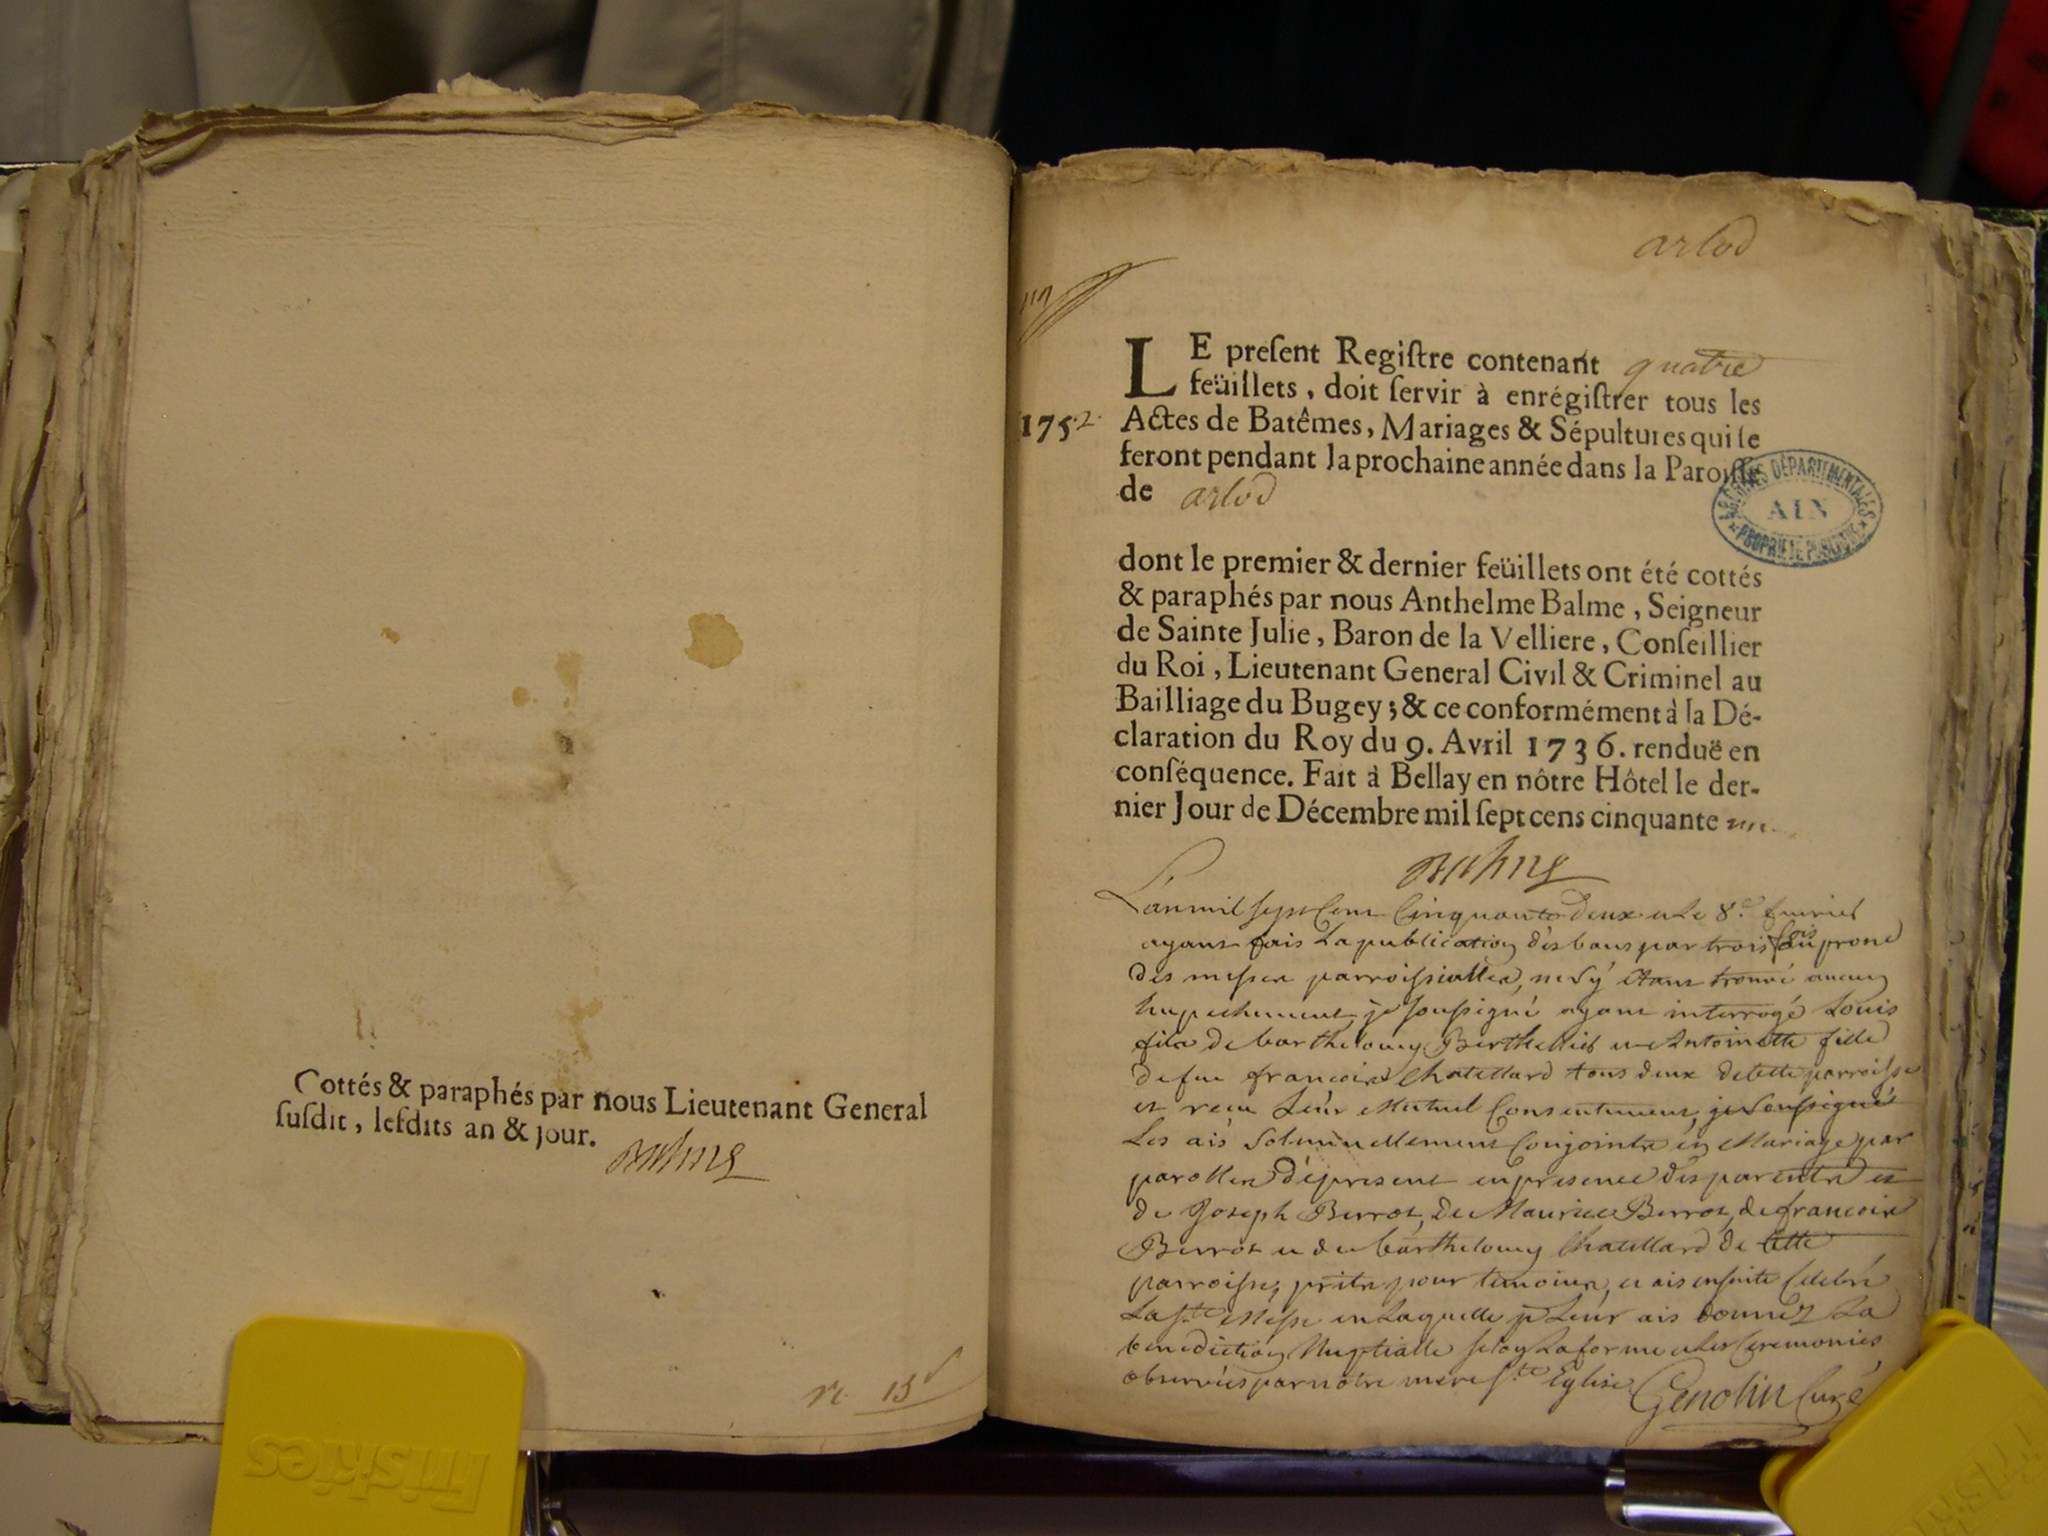 Cottés & paraphés par nous Lieutenant General
susdit, lesdits an & jour.
Balme
arlod
LE present Registre contenant quatre
feüillets, doit servir à enrégistrer tous les
1752. Actes de Batêmes, Mariages & Sépultures qui se
feront pendant la prochaine année dans la Paroisse
de arlod
ARCHIVES DÉPARTEMENTALES
AIN
PROPRIÉTÉ PUBLIQUE
dont le premier & dernier feüillets ont été cottés
& paraphés par nous Anthelme Balme, Seigneur
de Sainte Julie, Baron de la Velliere, Conseillier
du Roi, Lieutenant General Civil & Criminel au
Bailliage du Bugey; & ce conformément à la Dé-
claration du Roy du 9. Avril 1736. renduë en
conséquence. Fait à Bellay en nôtre Hôtel le der-
nier Jour de Décembre mil sept cens cinquante un
Balme
L'an mil sept cent cinquante deux et le 8e fevrier
ayant fais la publication des bans par trois fois au prone
des messes parroissialles, ne s'y etant trouvé aucun
empechement je soussigné ayant interrogé Louis
fils de barthelomy Berthellier et Antoinette fille
de feu francois Chatellard tous deux de cette parroisse
et recu leur mutuel consentement je soussigné
les ais solemnellement conjoints en Mariage par
parolles de present en presence des parents et
de Joseph Berrot, de Maurice Berrot, de francois
Berrot et de barthelomy Chatellard de cette
parroisse, prits pour temoins, et ais ensuite celebré
la ste Messe en laquelle je leur ais donnez la
benediction Nuptialle selon la forme et les ceremonies
observées par notre mere ste Eglise Genolin Curé
Friskies